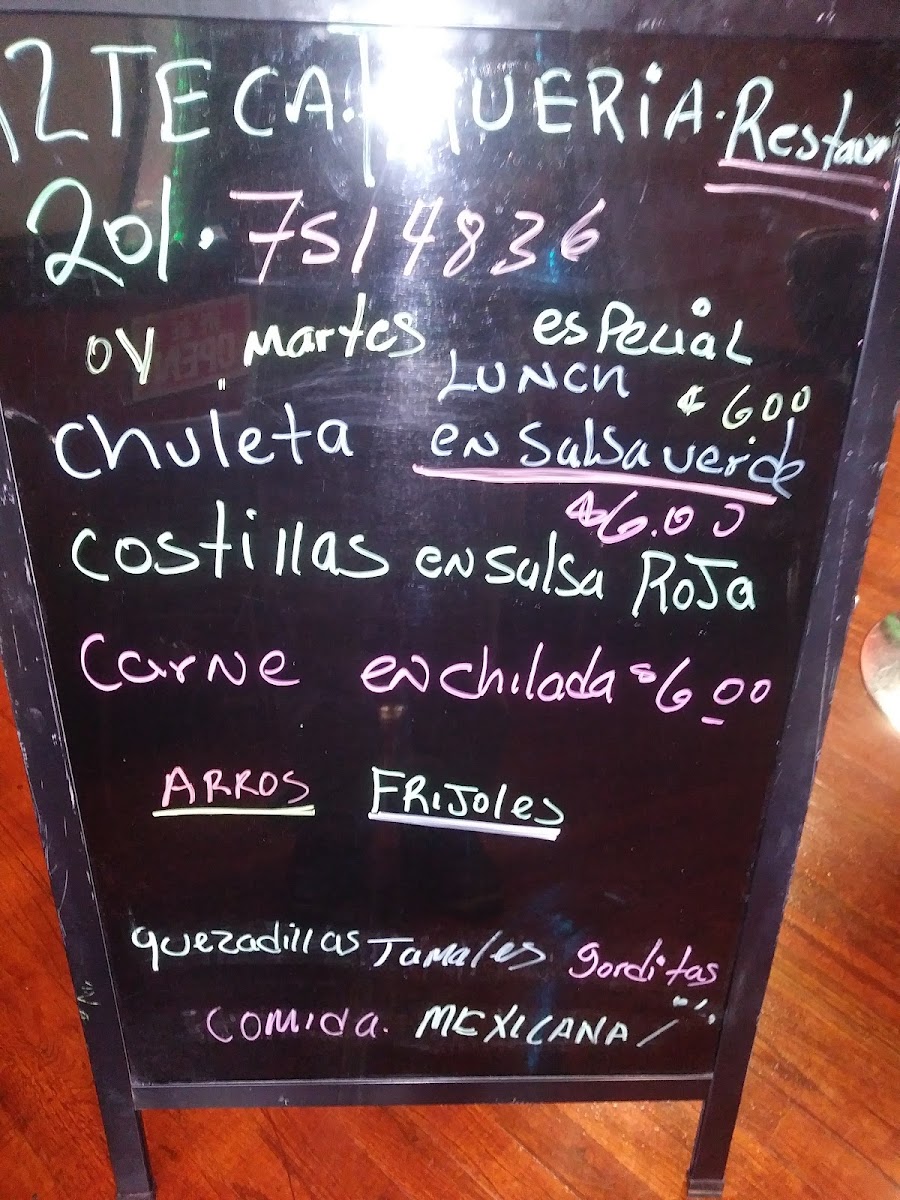 AZTECA. TAQUERIA. Restaur
201. 7514836
oy Martes especial
LUNCH $ 600
chuleta en salsa verde
$6.00
costillas en salsa ROJa
carne enchilada $6.00
ARROS FRIJoles
quezadillas Tamales gorditas
comida. MEXICANA